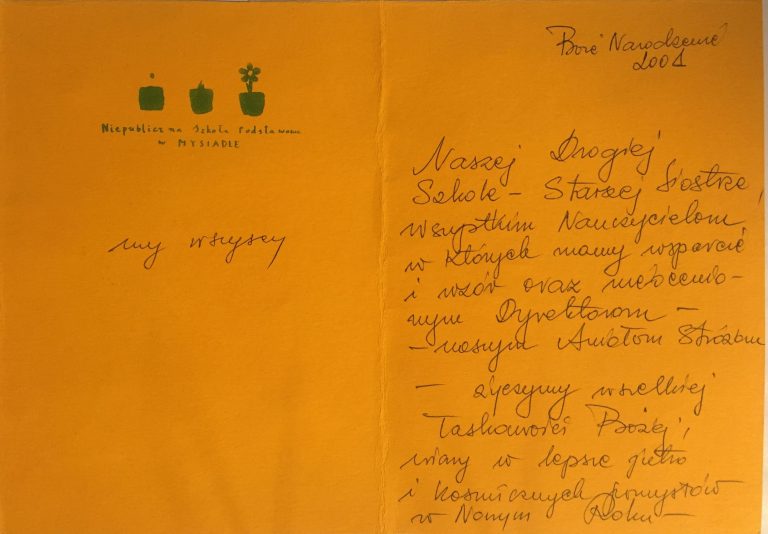 Niepubliczna Szkoła Podstawowa
w MYSIADLE
my wszyscy
Boże Narodzenie
2001
Naszej Drogiej
Szkole – Starszej Siostrze,
wszystkim Nauczycielom,
w których mamy wsparcie
i wzór oraz nieocenio-
nym Dyrektorom –
– naszym Aniołom Stróżom
– życzymy wszelkiej
Łaskawości Bożej,
wiary w lepsze jutro
i kosmicznych pomysłów
w Nowym Roku –